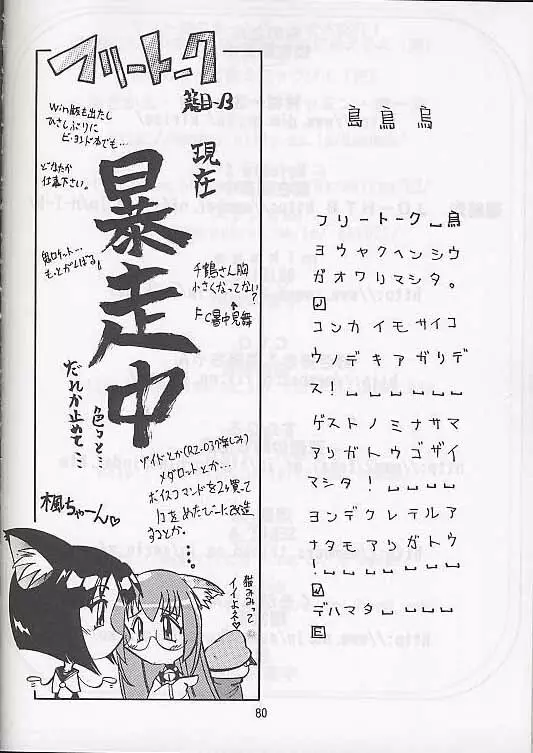 フリートーク
籠目-B
Win版も出たし
ひさしぶりに
ビ・ヨンド本でも…
どなたか
仕事下さい。
鬼ロケット…
もっとがんばる!
現在
暴走中
千鶴さん胸
小さくなってない?
FC暑中見舞
色々と…
だれか止めて…
ゾイドとか(RZ-037楽しみ)
メダロットとか…
ボイスコマンドを2ヶ買って
1コをめたびーに改造
するとか。
…。
楓ちゃーん♡
猫みみって
イイよネ♡
島島島
フリートーク_島
ヨウヤクヘンシウ
ガオワリマシタ。
コンカイモサイコ
ウノデキアガリデ
ス!_ _ _ _ _ _
ゲストノミナサマ
アリガトウゴザイ
マシタ!_ _ _ _
ヨンデクレテルア
ナタモアリガトウ
!_ _ _ _ _ _
デハマタ_ _ _ _
E
80